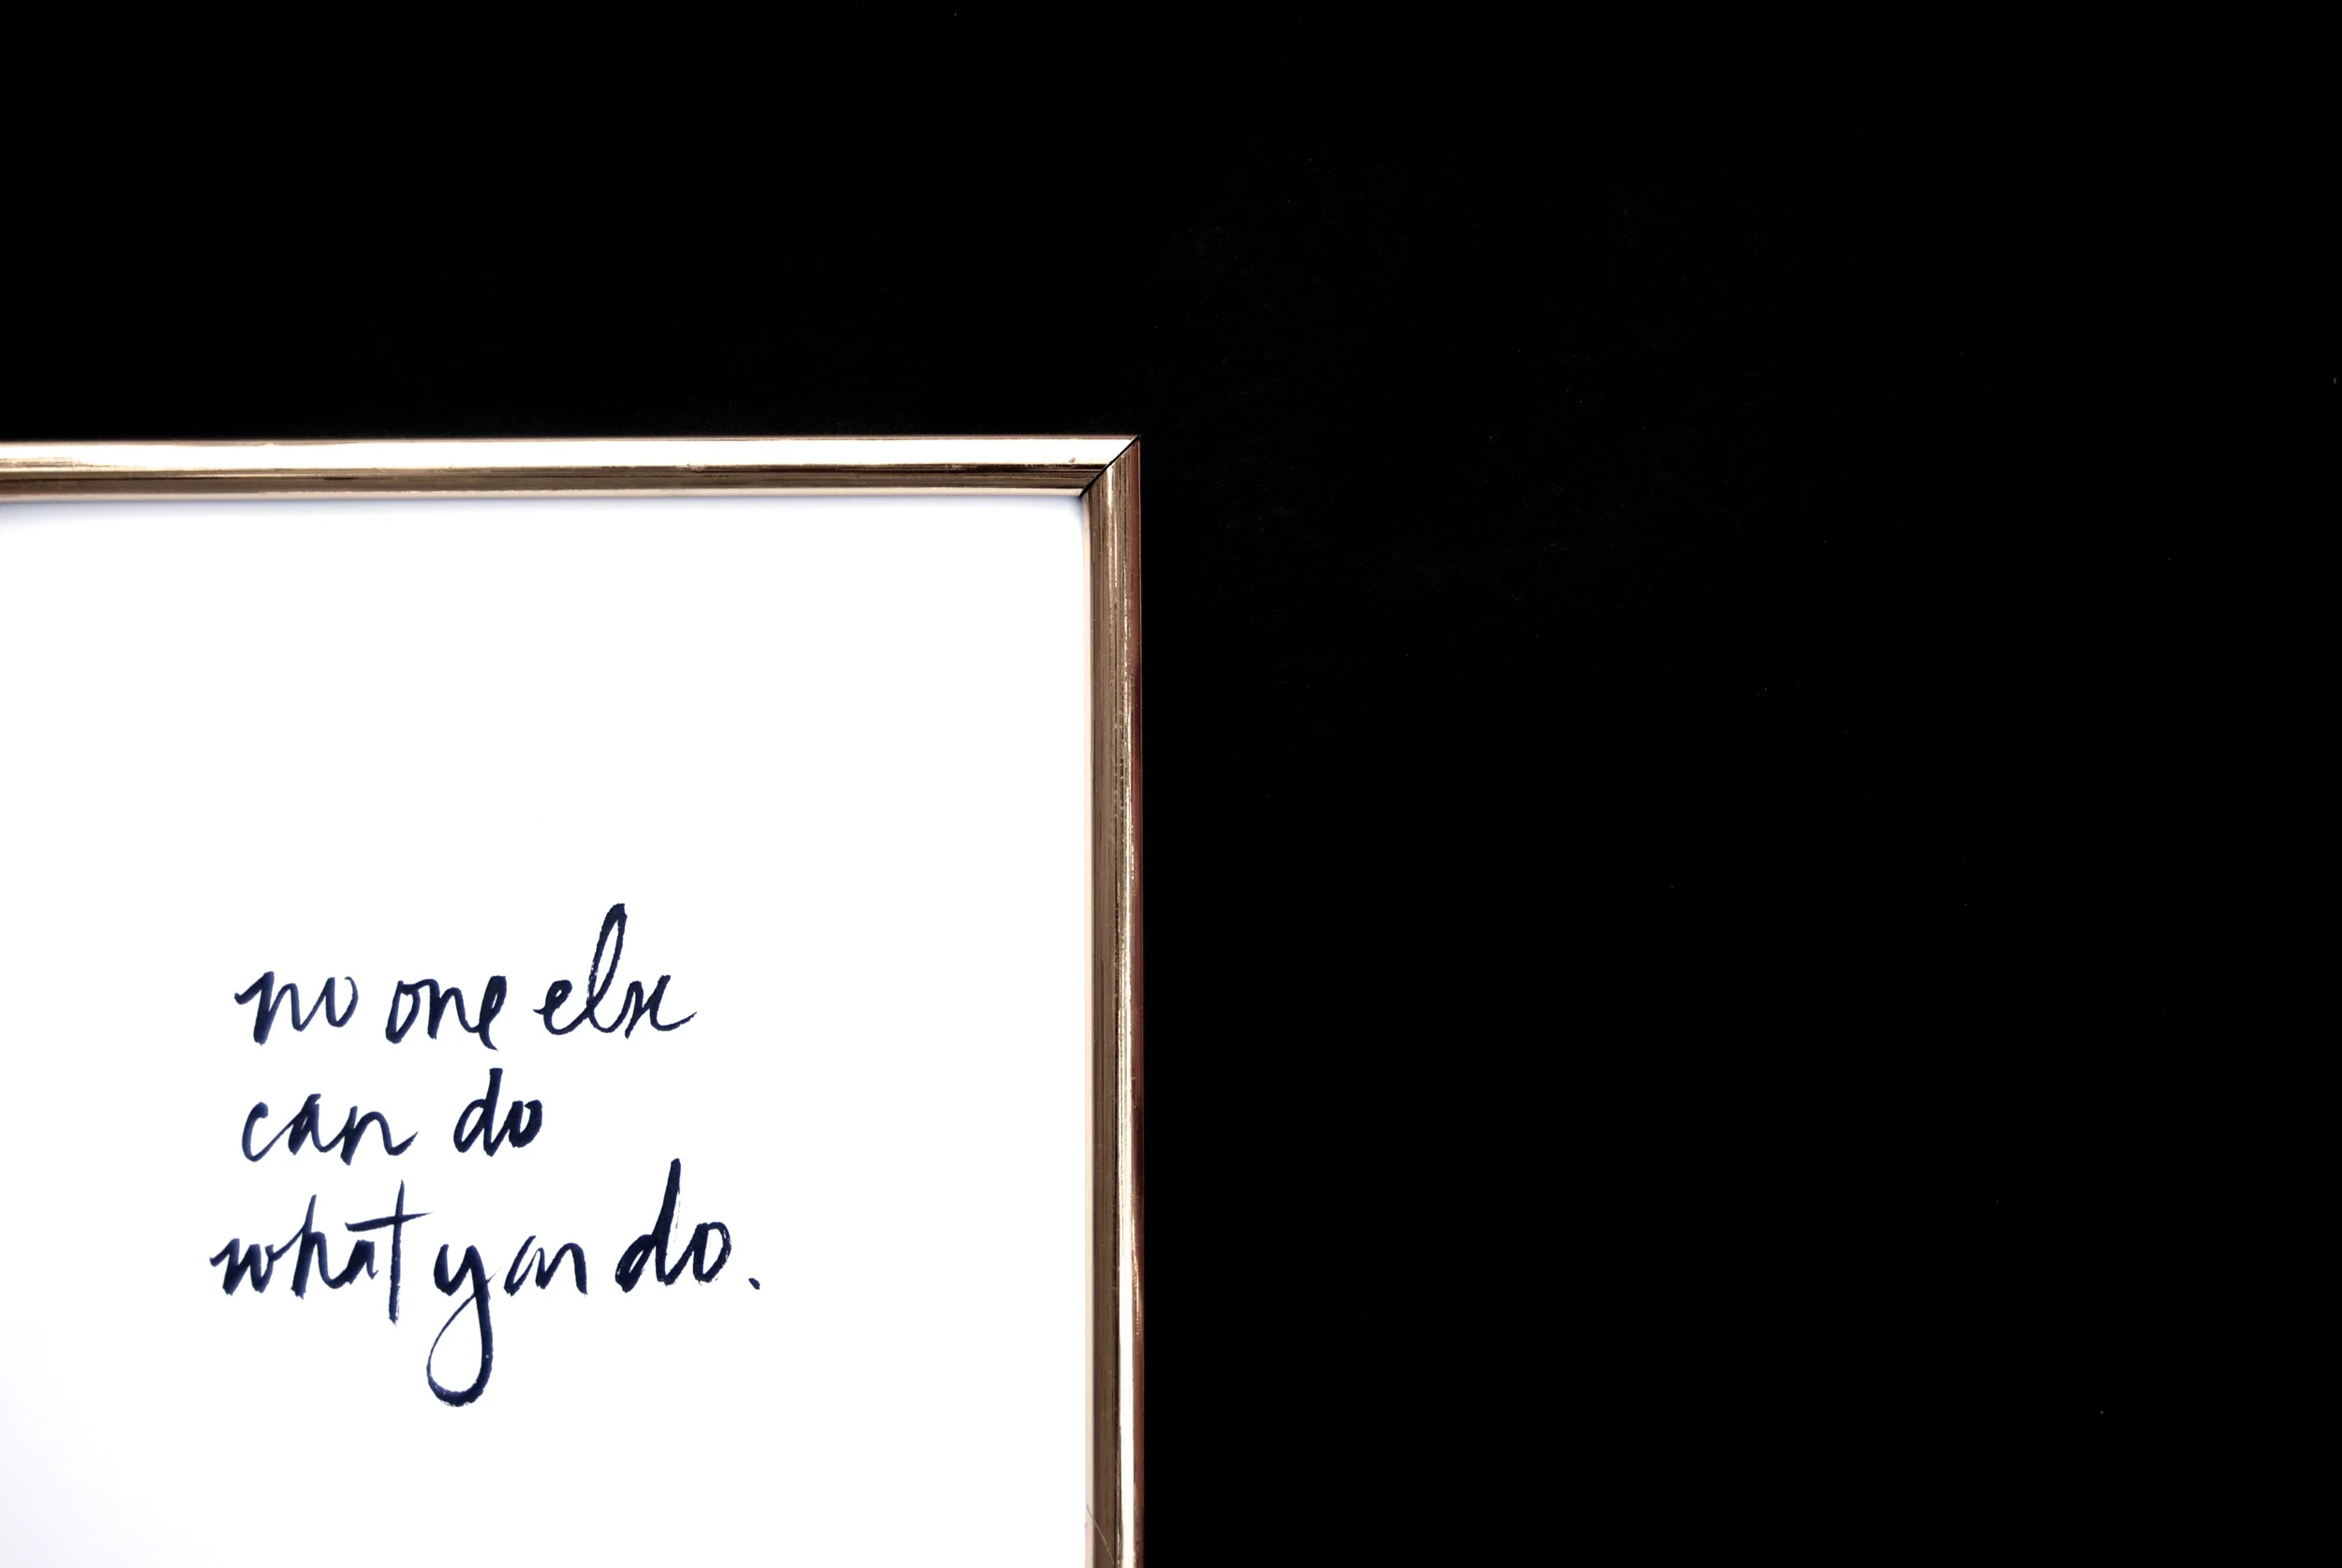 no one else
can do
what you do.